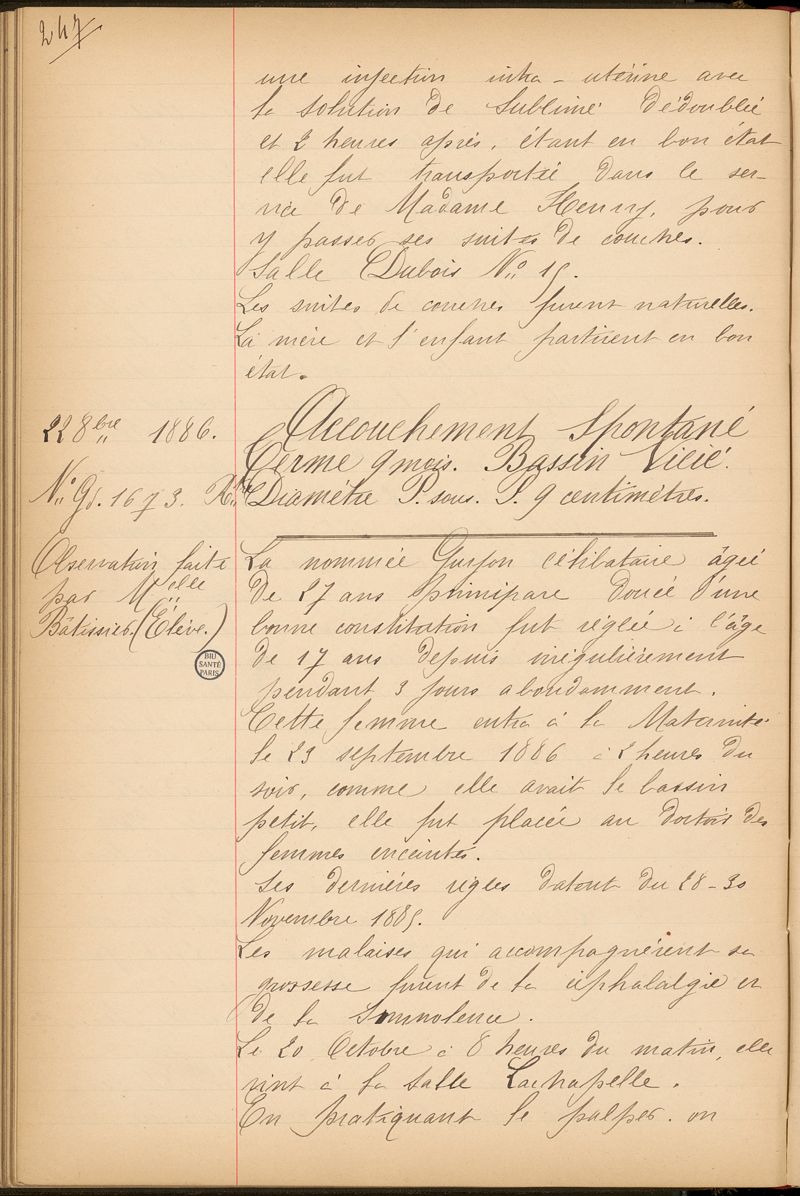 247
une injection intra-utérine avec
la solution de Sublimé dédoublée
et 2 heures après, étant en bon état
elle fut transportée dans le ser-
vice de Madame Henry, pour
y passer ses suites de couches.
Salle Dubois No 15.
Les suites de couches furent naturelles.
La mère et l'enfant partirent en bon
état.
22 8bre 1886.
Accouchement Spontané
Terme 9 mois. Bassin Vicié.
No Gd. 1673.
Diamètre P. sous. P. 9 centimètres.
Observation faite
par Melle
Bâtissier. (Élève.)
BIU
SANTÉ
PARIS
La nommée célibataire âgée
de 27 ans primipare Douée d'une
bonne constitution fut réglée à l'âge
de 17 ans depuis irrégulièrement
pendant 3 jours abondamment.
Cette femme entra à la Maternité
le 23 septembre 1886 à 2 heures du
soir, comme elle avait le bassin
petit, elle fut placée au dortoir des
femmes enceintes.
Ses dernières règles datent du 28-30
Novembre 1885.
Les malaises qui accompagnèrent sa
grossesse furent de la céphalalgie et
de la Somnolence.
Le 20 Octobre à 8 heures du matin, elle
vint à la Salle Lachapelle.
En pratiquant le palper. on